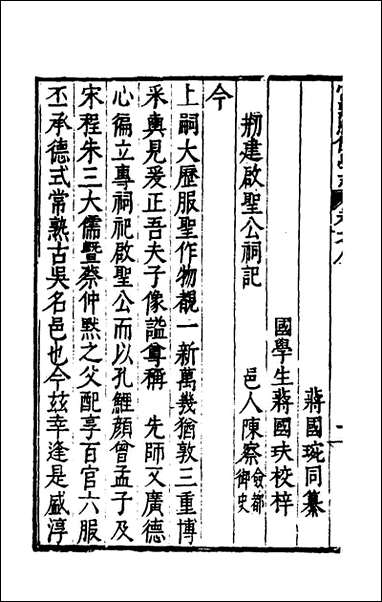 蔣國琬同纂
國學生蔣國玞校梓
刱建啟聖公祠記　邑人陳察僉都御史
今
上嗣大歷服聖作物覩一新萬幾猶敦三重博
采輿見爰正吾夫子像謚尊稱　先師又廣德
心徧立專祠祀啟聖公而以孔鯉顏曾孟子及
宋程朱三大儒暨蔡仲黙之父配享百官六服
丕承德式常熟古吳名邑也今兹幸逢是盛淳